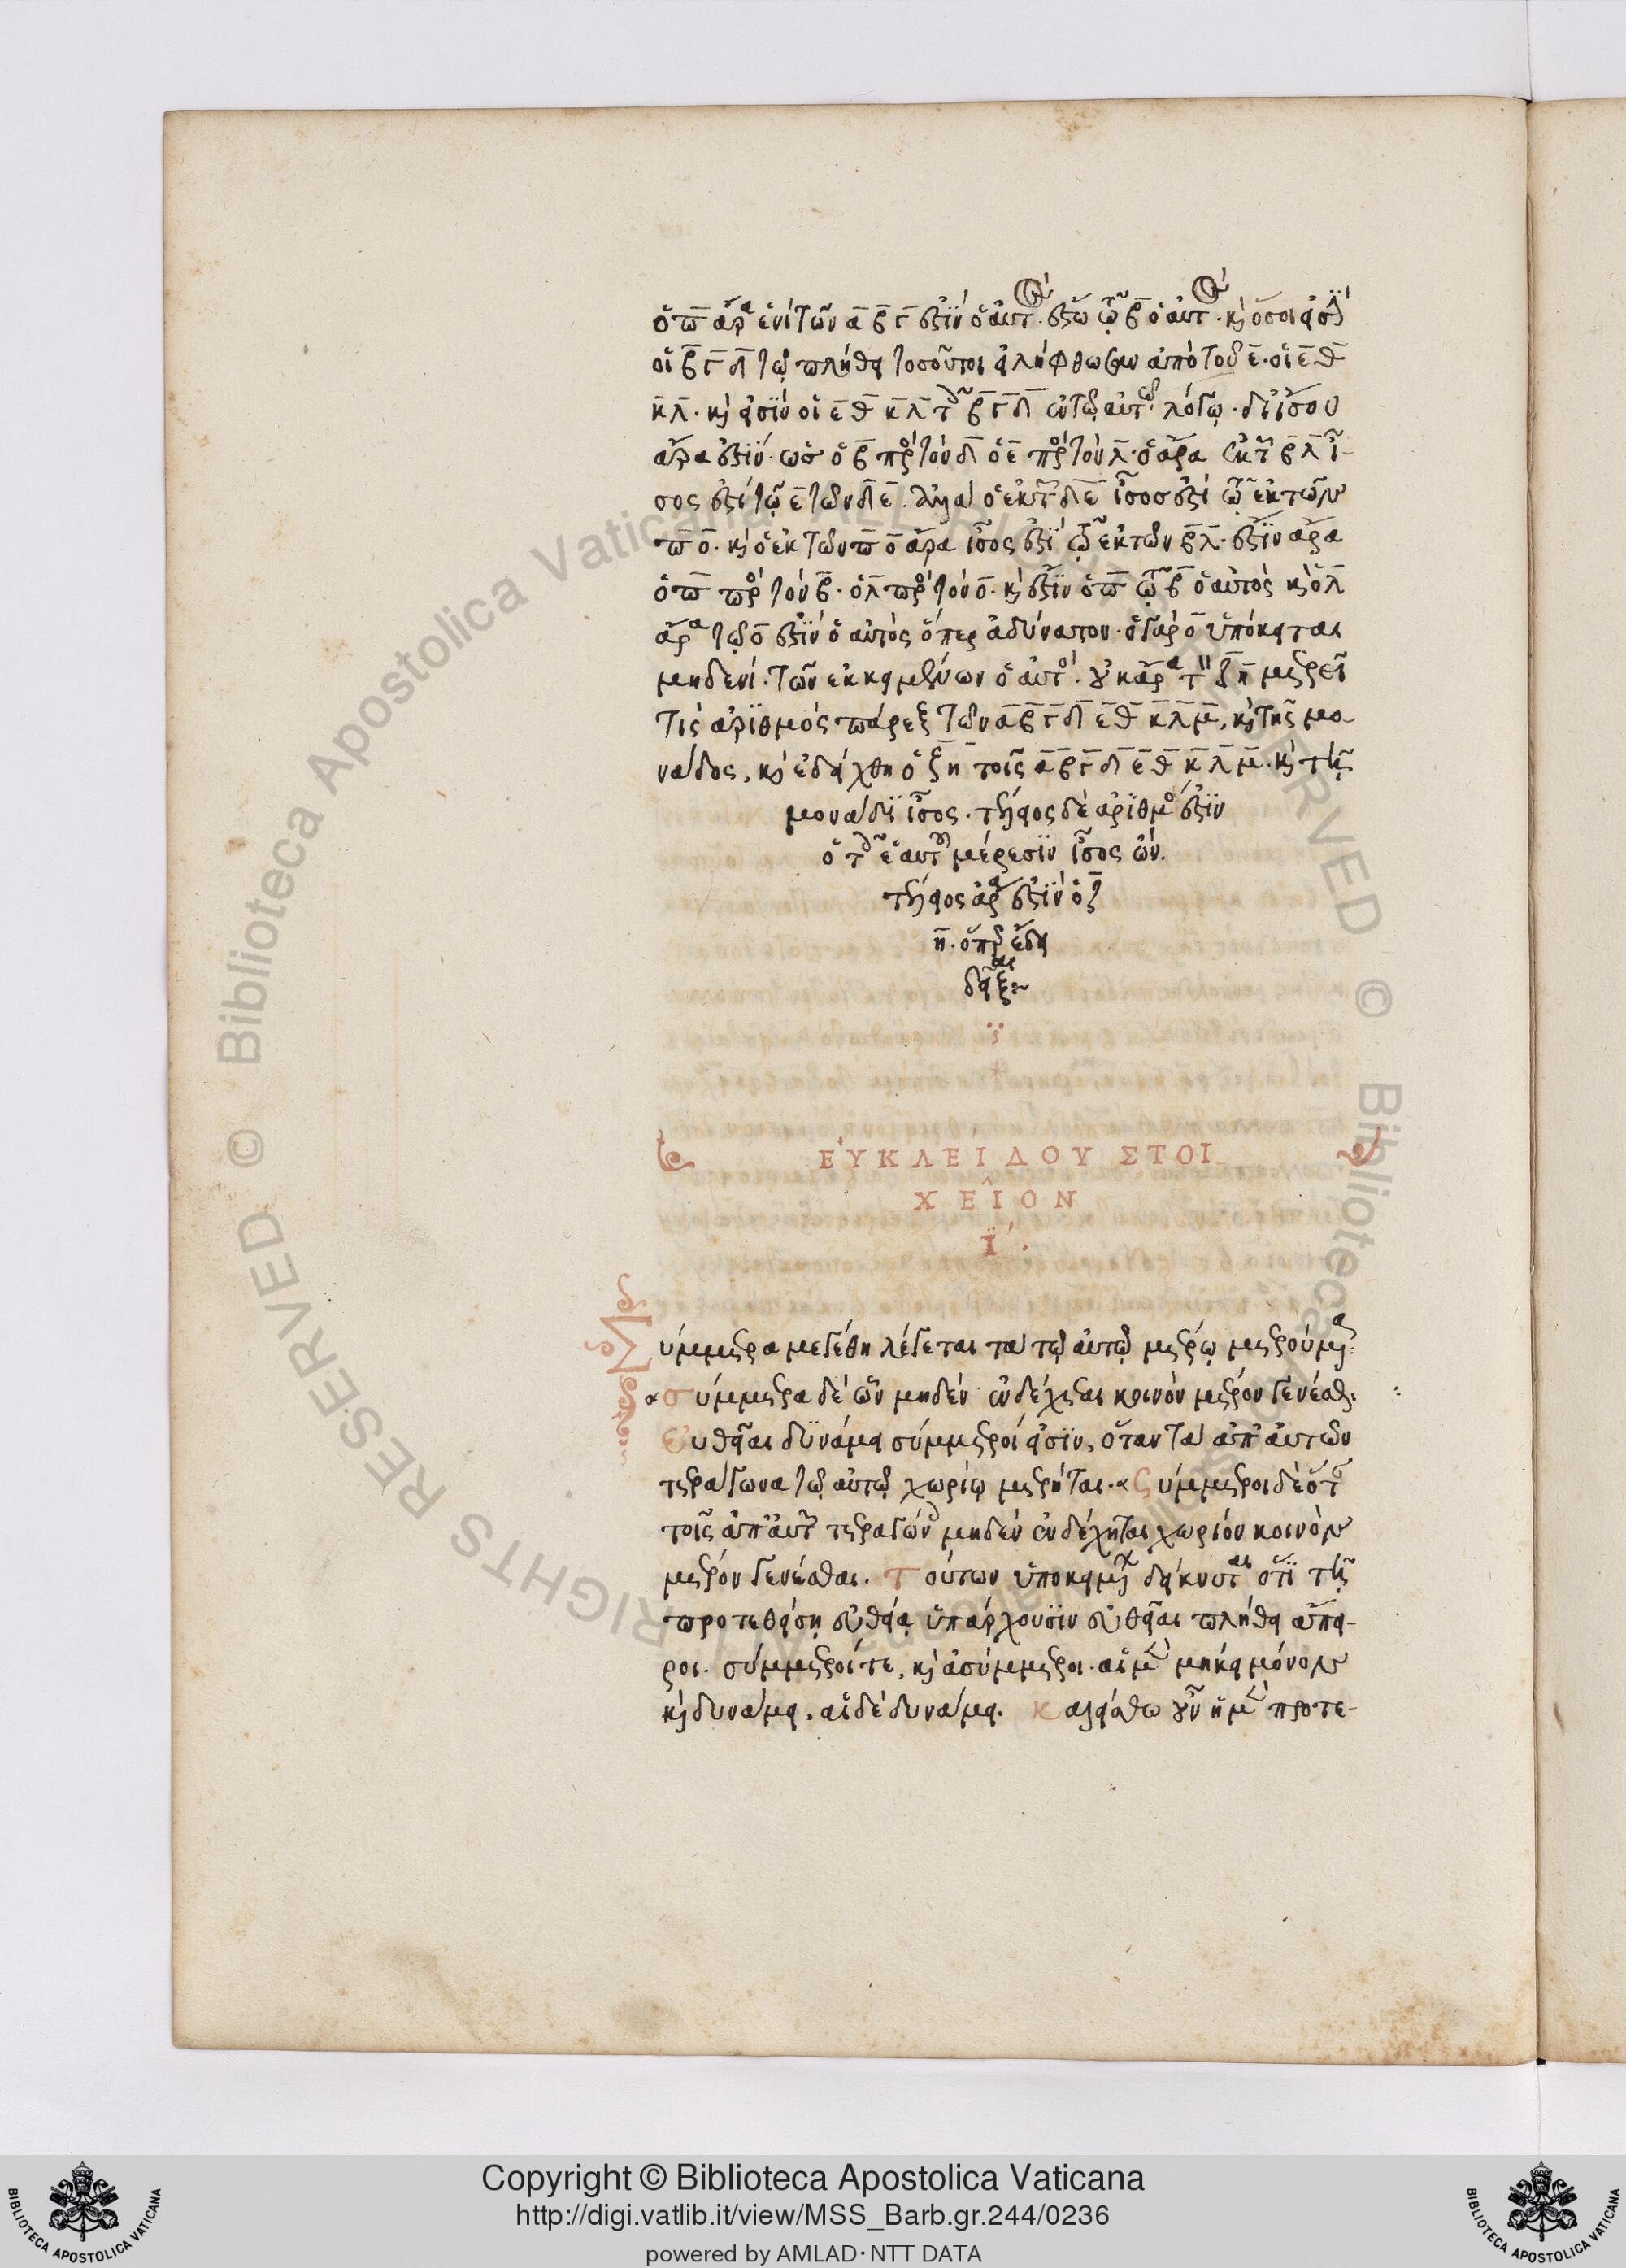 ὁ π ἄρα ἑνὶ τῶν α β γ ἐστὶν ὁ αὐτός. ἔστω τῷ β ὁ αὐτός. καὶ ὅσοι εἰσὶν
οἱ β γ δ τῷ πλήθει τοσοῦτοι εἰλήφθωσαν ἀπὸ τοῦ ε. οἱ ε θ
κ λ. καὶ εἰσὶν οἱ ε θ κ λ τοῖς β γ δ ἐν τῷ αὐτῷ λόγῳ. διΐσου
ἄρα ἐστὶν. ὡς ὁ β πρὸς τὸν δ ὁ ε πρὸς τὸν λ. ὁ ἄρα ἐκ τῶν β λ ἴ-
σος ἐστὶ τῷ ἐκ τῶν δ ε. ἀλλὰ ὁ ἐκ τῶν δ ε ἴσος ἐστὶ τῷ ἐκ τῶν
π ο. καὶ ὁ ἐκ τῶν π ο ἄρα ἴσος ἐστὶ τῷ ἐκ τῶν β λ. ἔστιν ἄρα
ὁ π πρὸς τὸν β. ὁ λ πρὸς τὸν ο. καὶ ἔστιν ὁ π τῷ β ὁ αὐτὸς καὶ ὁ λ
ἄρα τῷ ο ἐστὶν ὁ αὐτὸς ὅπερ ἀδύνατον. ὁ γὰρ ο ὑπόκειται
μηδενὶ. τῶν ἐκκειμένων ὁ αὐτός. οὐκ ἄρα τὸν ζ η μετρεῖ
τὶς ἀρϊθμὸς πάρεξ τῶν α β γ δ ε θ κ λ μ, καὶ τῆς μο
νάδος, καὶ ἐδείχθη ὁ ζ η τοῖς α β γ δ ε θ κ λ μ. καὶ τῇ
μονάδϊ ἴσος. τέλειος δὲ ἀρϊθμός ἐστϊν
ὁ τοῖς ἑαυτοῦ μέρεσϊν ἴσος ὤν.
τέλειος ἄρα ἐστὶν ὁ ζ
η. ὅπερ ἔδει
δεῖξαι:~
ΕΥΚΛΕΙΔΟΥ ΣΤΟΙ
ΧΕΙΟΝ
Ϊ.
Σύμμετρα μεγέθη λέγεται τὰ τῷ αὐτῷ μέτρῳ μετρούμενα:
ἀσύμμετρα δὲ ὧν μηδὲν ἐνδέχεται κοινὸν μέτρον γενέσθαι:
εὐθεῖαι δϋνάμει σύμμετροί εἰσϊν, ὅταν τὰ ἀπ' αὐτῶν
τετράγωνα τῷ αὐτῷ χωρίῳ μετρῆται. ἀσύμμετροι δὲ ὅταν
τοῖς ἀπ' αὐτῶν τετραγώνοις μηδὲν ἐνδέχηται χωρίον κοινὸν
μέτρον γενέσθαι. τούτων ὑποκειμένων δείκνυται ὅτϊ τῇ
προτεθείσῃ εὐθείᾳ ὑπάρχουσϊν εὐθεῖαι πλήθει ἄπει-
ροι. σύμμετροί τε, καὶ ἀσύμμετροι. αἱ μὲν μήκει μόνον
καὶ δυνάμει, αἱ δὲ δυνάμει. καλείσθω οὖν ἡ μὲν προτε-
Copyright © Biblioteca Apostolica Vaticana
http://digi.vatlib.it/view/MSS_Barb.gr.244/0236
powered by AMLAD·NTT DATA
BIBLIOTECA APOSTOLICA VATICANA
BIBLIOTECA APOSTOLICA VATICANA
© Biblioteca Apostolica Vaticana ALL RIGHTS RESERVED
© Biblioteca Apostolica Vaticana ALL RIGHTS RESERVED